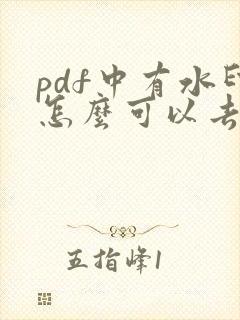 pdf中有水
怎麼可以去
五指峰1